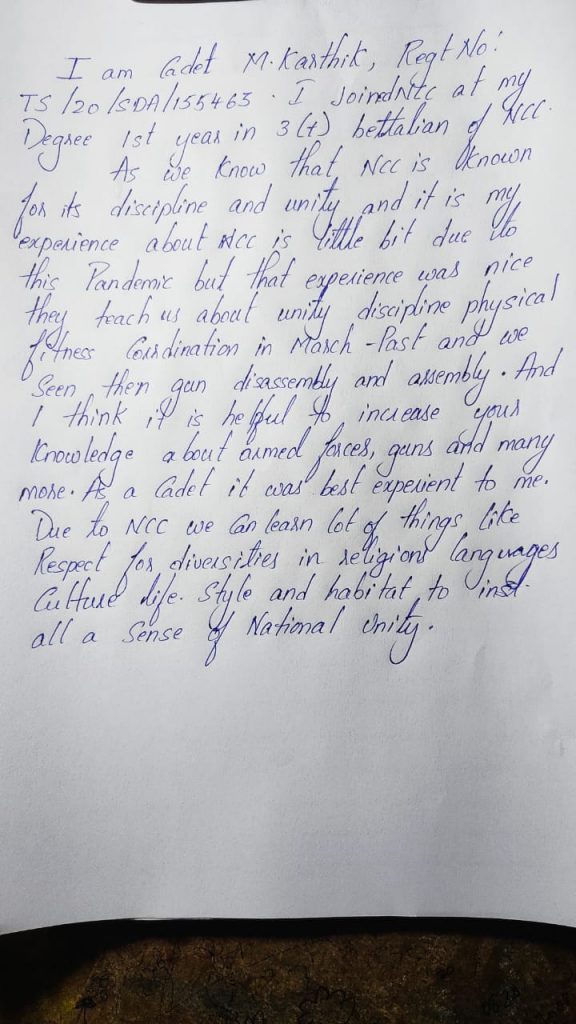 I am Cadet M. Karthik, Regt No:
TS/20/SDA/155463. I Joined Ncc at my
Degree 1st year in 3(t) bettalian of NCC.
As we Know that Ncc is Known
for its discipline and unity and it is my
experience about Ncc is little bit due to
this Pandemic but that experience was nice
they teach us about unity discipline physical
fitness Coordination in March-Past and we
Seen then gun disassembly and assembly. And
I think it is helpful to increase your
Knowledge about armed forces, guns and many
more. As a Cadet it was best experient to me.
Due to NCC we Can learn lot of things like
Respect for diversities in religions languages
Culture life. Style and habitat, to inst.
all a Sense of National Unity.